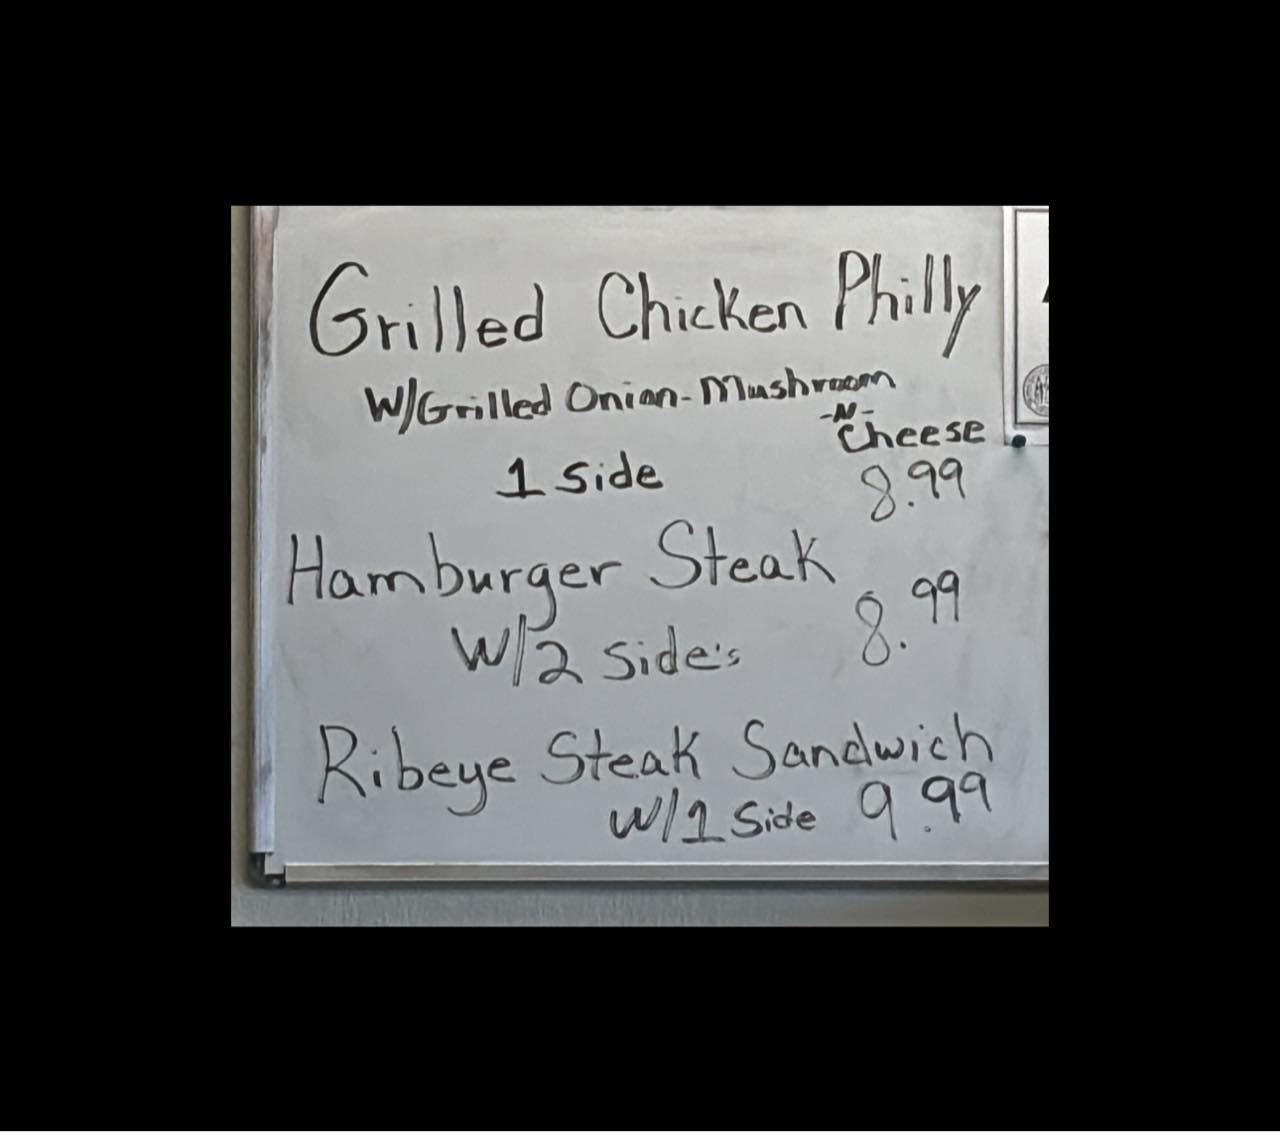 Grilled Chicken Philly
W/Grilled Onion-Mushroom
-N-
Cheese
1 Side 8.99
Hamburger Steak
8.99
W/2 Side's
Ribeye Steak Sandwich
W/1 Side 9.99